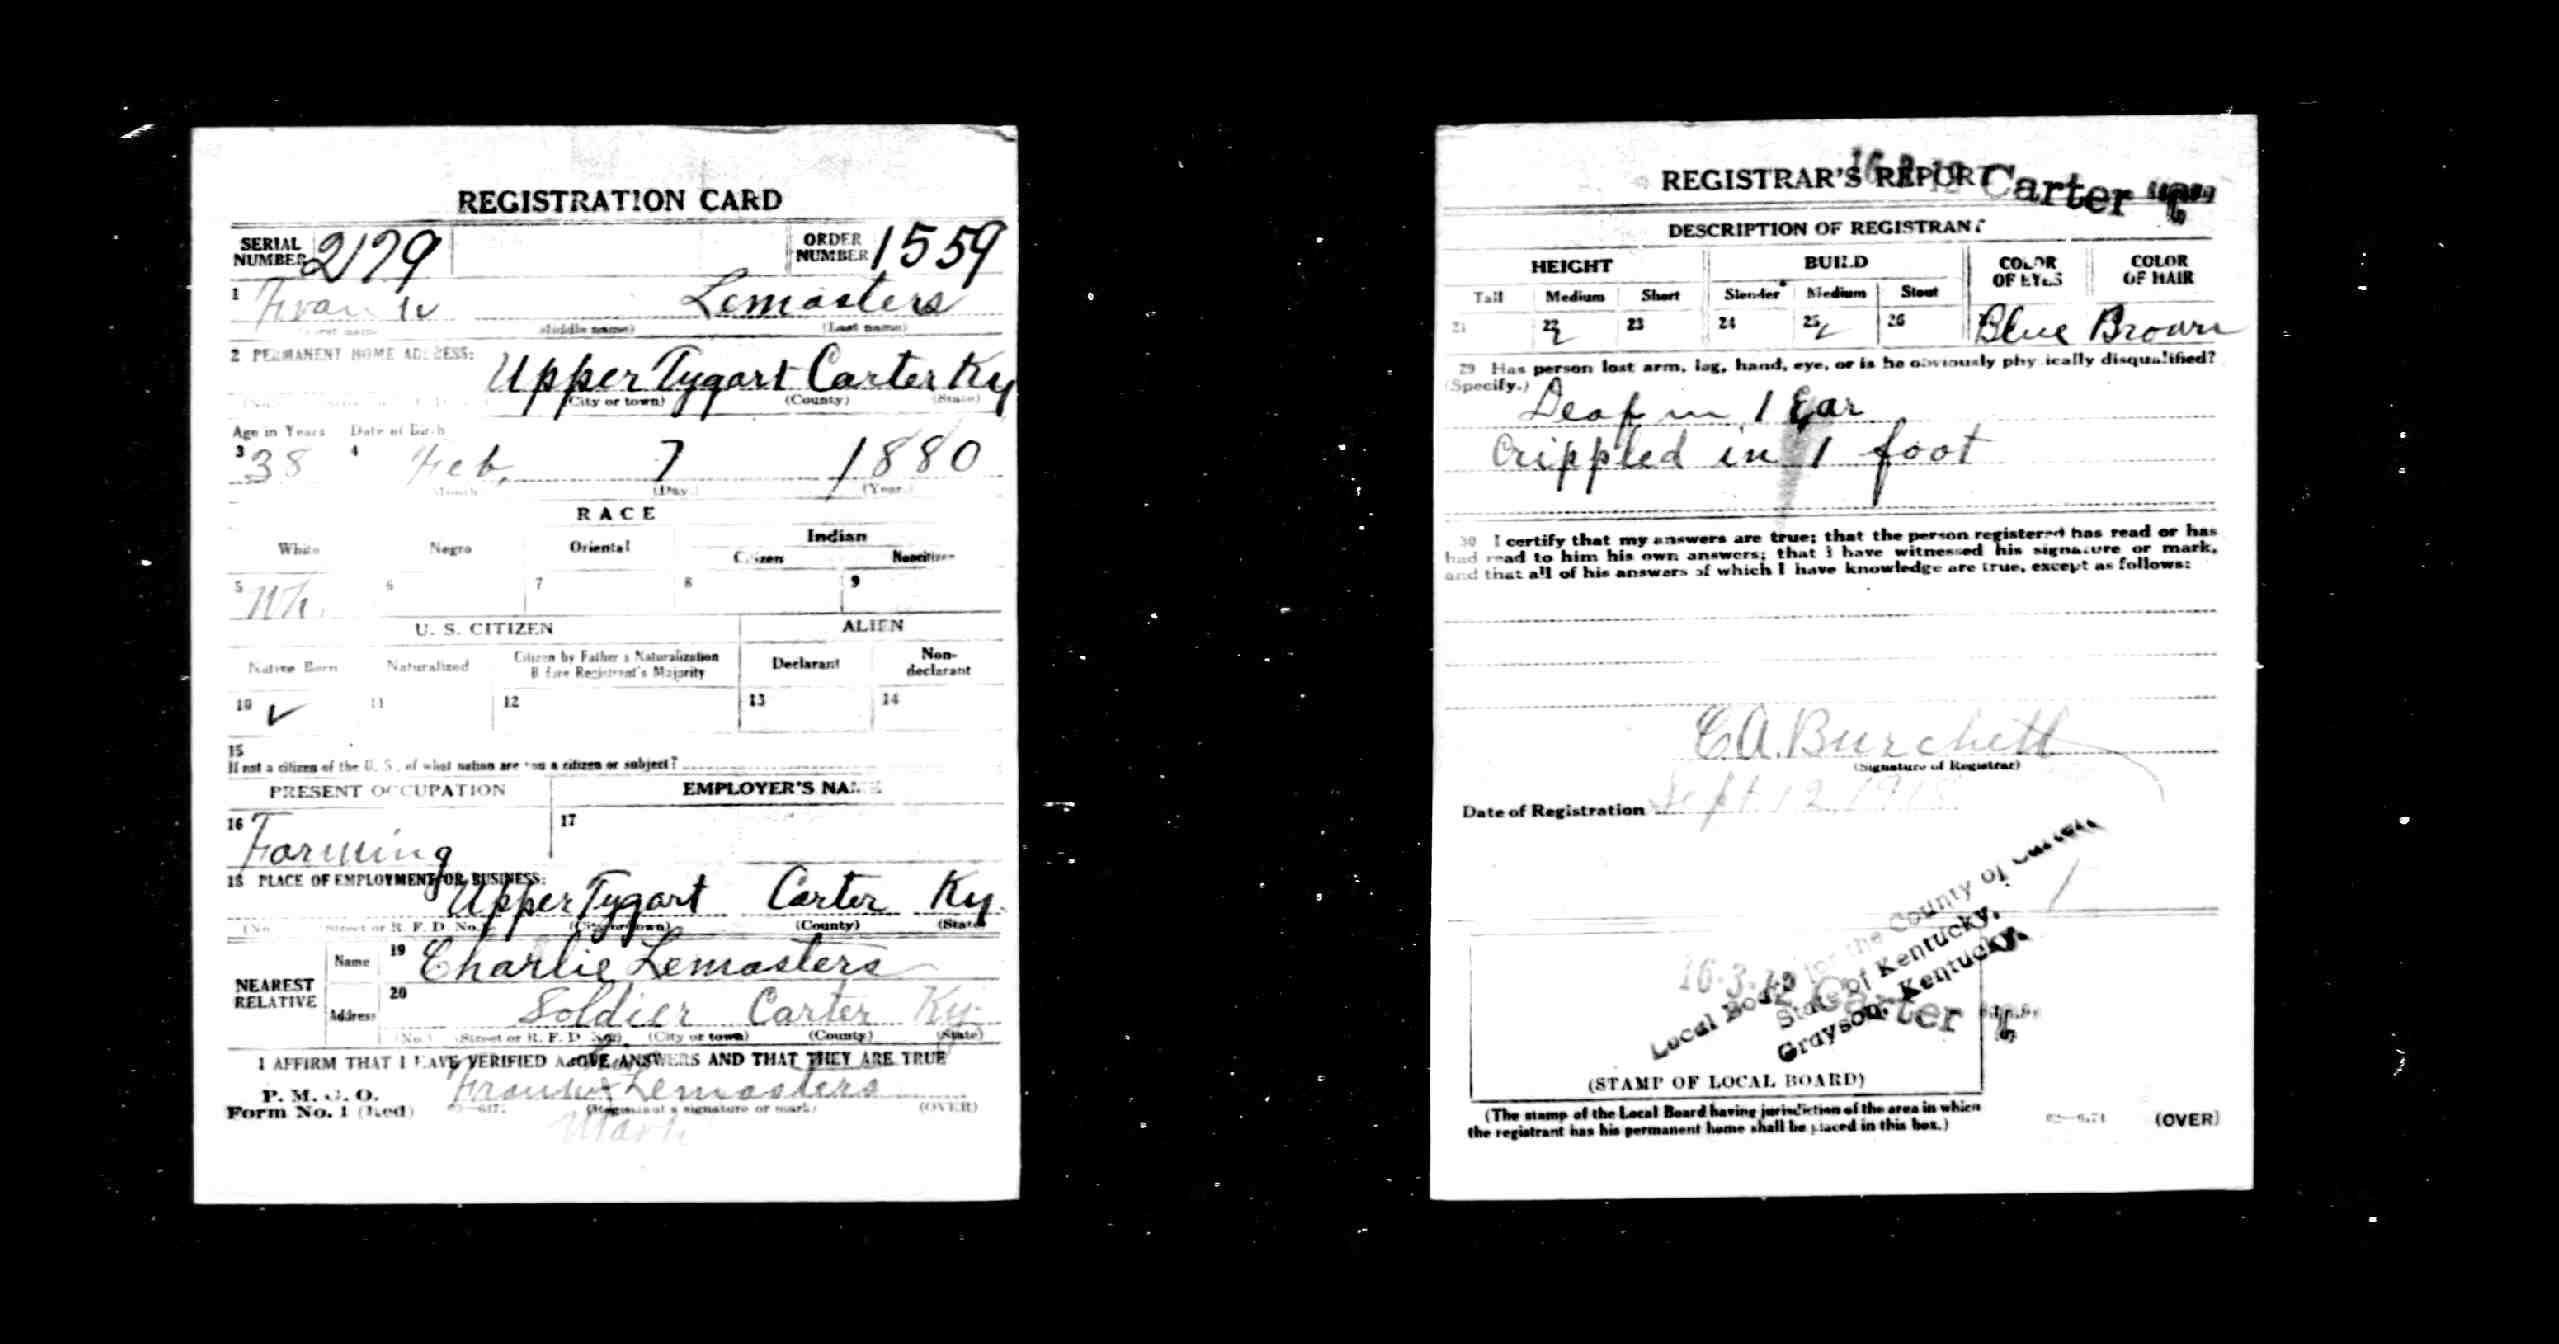 REGISTRATION CARD
SERIAL NUMBER 2179 ORDER NUMBER 1559
1 Frank Lemasters
(First name) (Middle name) (Last name)
2 PERMANENT HOME ADDRESS:
Upper Tygart Carter Ky
(No.) (City or town) (County) (State)
Age in Years Date of Birth
3 38 4 Feb. 7 1880
(Month) (Day.) (Year.)
RACE
White Negro Oriental Indian
Citizen Noncitizen
5 Wh. 6 7 8 9
U. S. CITIZEN ALIEN
Native Born Naturalized Citizen by Father's Naturalization Before Registrant's Majority Declarant Non-declarant
10 ✓ 11 12 13 14
15
If not a citizen of the U. S., of what nation are you a citizen or subject?
PRESENT OCCUPATION EMPLOYER'S NAME
16 Farming 17
18 PLACE OF EMPLOYMENT OR BUSINESS:
Upper Tygart Carter Ky.
(No. Street or R. F. D. No.) (City or town) (County) (State)
NEAREST RELATIVE Name 19 Charlie Lemasters
Address 20 Soldier Carter Ky.
(No.) (Street or R. F. D. No.) (City or town) (County) (State)
I AFFIRM THAT I HAVE VERIFIED ABOVE ANSWERS AND THAT THEY ARE TRUE
P. M. G. O.
Form No. 1 (Red) Frank x Lemasters
(Registrant's signature or mark) (OVER)
Mark
REGISTRAR'S REPORT Carter
DESCRIPTION OF REGISTRANT
HEIGHT BUILD COLOR OF EYES COLOR OF HAIR
Tall Medium Short Slender Medium Stout
21 22 23 24 25 26 Blue Brown
29 Has person lost arm, leg, hand, eye, or is he obviously physically disqualified?
(Specify.) Deaf in 1 Ear
Crippled in 1 foot
30 I certify that my answers are true; that the person registered has read or has
had read to him his own answers; that I have witnessed his signature or mark,
and that all of his answers of which I have knowledge are true, except as follows:
C.A. Burchett
(Signature of Registrar)
Date of Registration Sept. 12, 1918
Local Board for the County of Carter
State of Kentucky,
Grayson, Kentucky.
16-3-12 Carter
(STAMP OF LOCAL BOARD)
(The stamp of the Local Board having jurisdiction of the area in which
the registrant has his permanent home shall be placed in this box.)
(OVER)